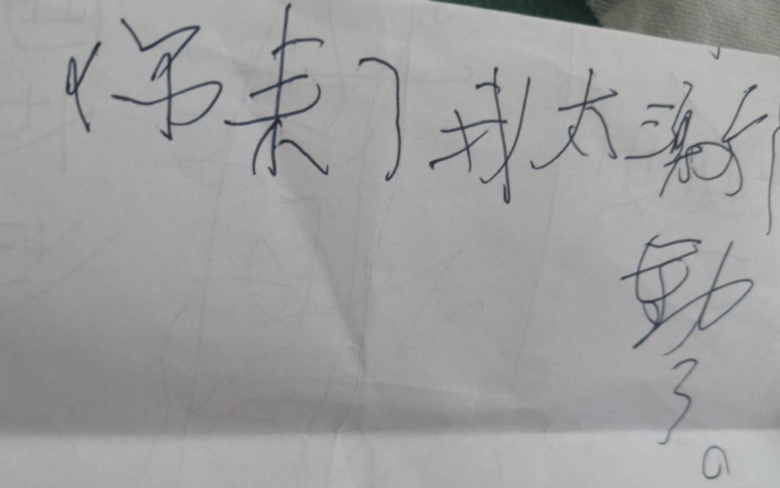 你来了我太激
动
了。